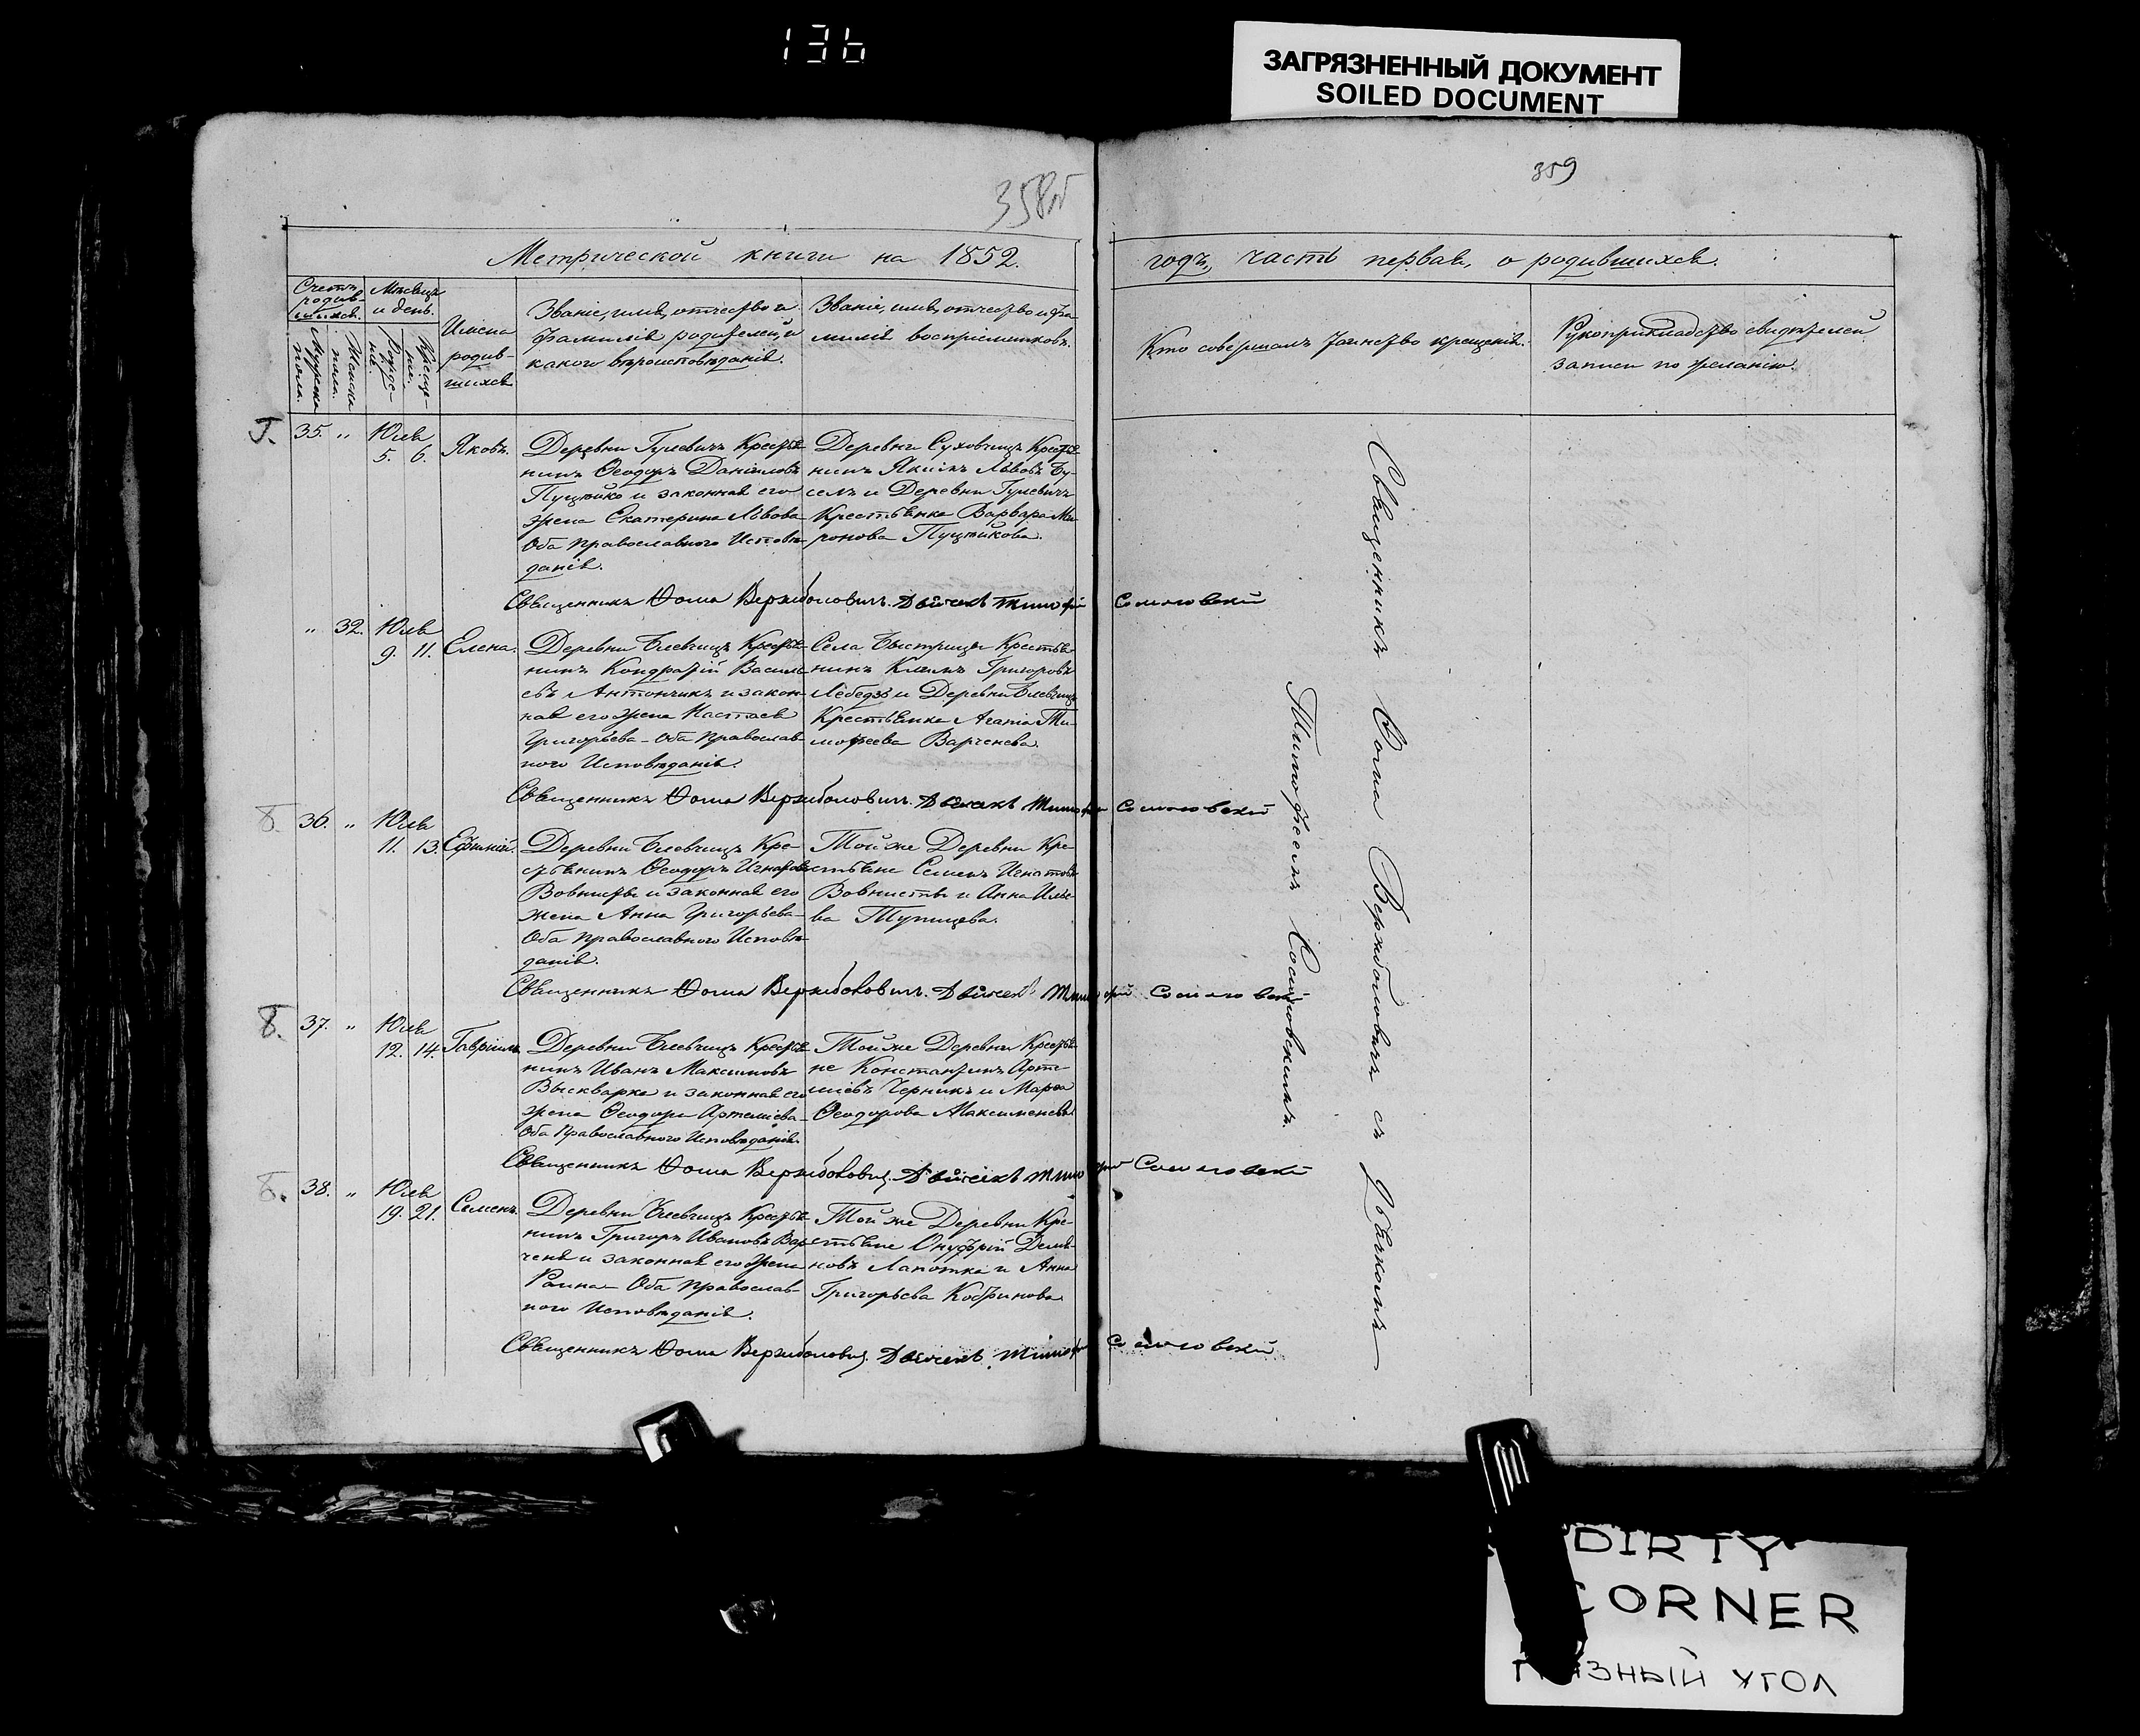 136
ЗАГРЯЗНЕННЫЙ ДОКУМЕНТ
SOILED DOCUMENT
359
Метрической книги на 1852.
годъ, часть первая, о родившихся.
Счетъ родив-шихся.
Мужеска пола.
Женска пола.
Мѣсяцъ и день.
Рожде-нія.
Креще-нія.
Имена родив-шихся
Званіе, имя, отчество и
фамилія родителей, и
какого вѣроисповѣданія.
Званіе, имя, отчество и фа-
милія воспріемниковъ.
Кто совершалъ таинство крещенія.
Рукоприкладство свидѣтелей
записи по желанію.
35. " Юля 5. 6. Яковъ.
Деревни Гулевичъ Крестья-
нинъ Ѳеодоръ Даніиловъ
Пуцейко и законная его
жена Екатерина Львова
Оба Православного Исповѣ-
данія.
Деревни Суховчицъ Крестья-
нинъ Якимъ Львовъ Бу-
селъ и Деревни Гулевичъ
Крестьянка Варвара Ми-
ронова Пуцейкова.
Священникъ Ѳома Вержболовичъ. Дьячекъ Тимофей Сошновскій
" 32. Юля 9. 11. Елена.
Деревни Блевчицъ Крестья-
нинъ Кондратій Василь-
евъ Антончикъ и закон-
ная его жена Настасья
Григорьева - Оба Православ-
ного Исповѣданія.
Села Быстрицы Крестья-
нинъ Климъ Григоровъ
Лебедзь и Деревни Блевчицъ
Крестьянка Агапія Ти-
мофеева Варченева.
Священникъ Ѳома Вержболовичъ. Дьячекъ Тимофей Сошновскій
36. " Юля 11. 13. Ефимій.
Деревни Блевчицъ Кре-
стьянинъ Ѳеодоръ Игнатовъ
Вовнисты и законная его
жена Анна Григорьева -
Оба Православного Исповѣ-
данія.
Той же Деревни Кре-
стьяне Семенъ Игнатовъ
Вовнисты и Анна Илье-
ва Тупицева.
Священникъ Ѳома Вержболовичъ. Дьячекъ Тимофей Сошновскій
37. " Юля 12. 14. Гавріилъ
Деревни Блевчицъ Крестья-
нинъ Иванъ Максимовъ
Выскварка и законная его
жена Ѳеодора Артеміева -
Оба Православного Исповѣданія.
Той же Деревни Крестья-
не Константинъ Арте-
міевъ Черникъ и Марѳа
Ѳеодорова Максименева
Священникъ Ѳома Вержболовичъ. Дьячекъ Тимофей Сошновскій
38. " Юля 19. 21. Семенъ.
Деревни Блевчицъ Крестья-
нинъ Григоръ Ивановъ Вар-
ченя и законная его Жена
Раина - Оба Православ-
ного Исповѣданія.
Той же Деревни Кре-
стьяне Онуфрій Демья-
новъ Лапотка и Анна
Григорьева Кобринова
Священникъ Ѳома Вержболовичъ. Дьячекъ Тимофей Сошновскій
Священникъ Ѳома Вержболовичъ съ Дьячкомъ
Тимофеемъ Сошновскимъ.
DIRTY
CORNER
ГРЯЗНЫЙ УГОЛ